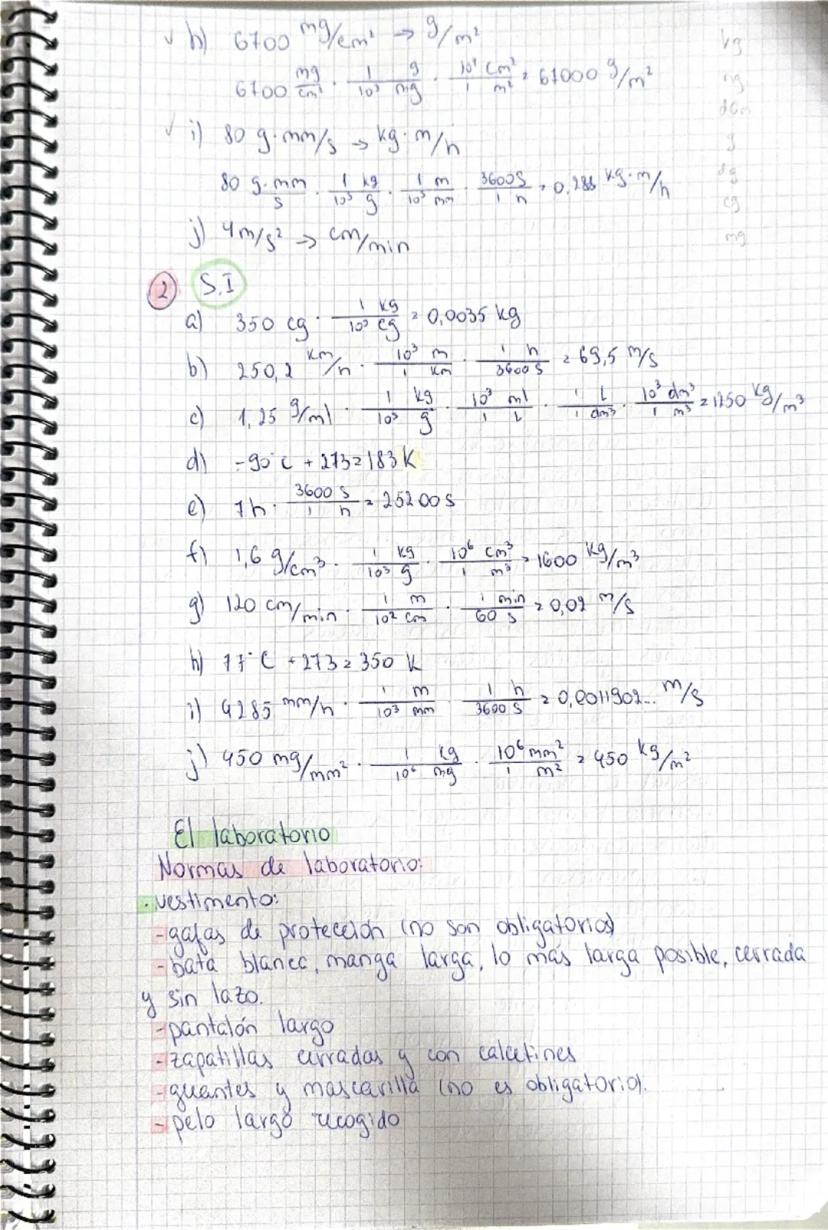 h) 6700 mg/cm² → g/m²
6700 mg/cm² · 1 g/10³ mg · 10⁴ cm²/1 m² = 67000 g/m²
i) 80 g·mm/s → kg·m/h
80 g·mm/s · 1 kg/10³ g · 1 m/10³ mm · 3600 s/1 h = 0,288 kg·m/h
j) 4m/s² → cm/min
② S.I
a) 350 cg · 1 kg/10⁵ cg = 0,0035 kg
b) 250,2 km/h · 10³ m/1 km · 1 h/3600 s = 69,5 m/s
c) 1,25 g/ml · 1 kg/10³ g · 10³ ml/1 l · 1 l/1 dm³ · 10³ dm³/1 m³ = 1250 kg/m³
d) -90°C + 273 = 183 K
e) 7h · 3600 s/1 h = 25200 s
f) 1,6 g/cm³ · 1 kg/10³ g · 10⁶ cm³/1 m³ = 1600 kg/m³
g) 120 cm/min · 1 m/10² cm · 1 min/60 s = 0,02 m/s
h) 77°C + 273 = 350 K
i) 4285 mm/h · 1 m/10³ mm · 1 h/3600 s = 0,0011902... m/s
j) 450 mg/mm² · 1 kg/10⁶ mg · 10⁶ mm²/1 m² = 450 kg/m²
El laboratorio
Normas de laboratorio:
· vestimento:
- gafas de protección (no son obligatorios)
- bata blanca, manga larga, lo más larga posible, cerrada
y sin lazo.
- pantalón largo
- zapatillas cerradas y con calcetines
- guantes y mascarilla (no es obligatorio).
- pelo largo recogido
kg
g
dg
cg
mg